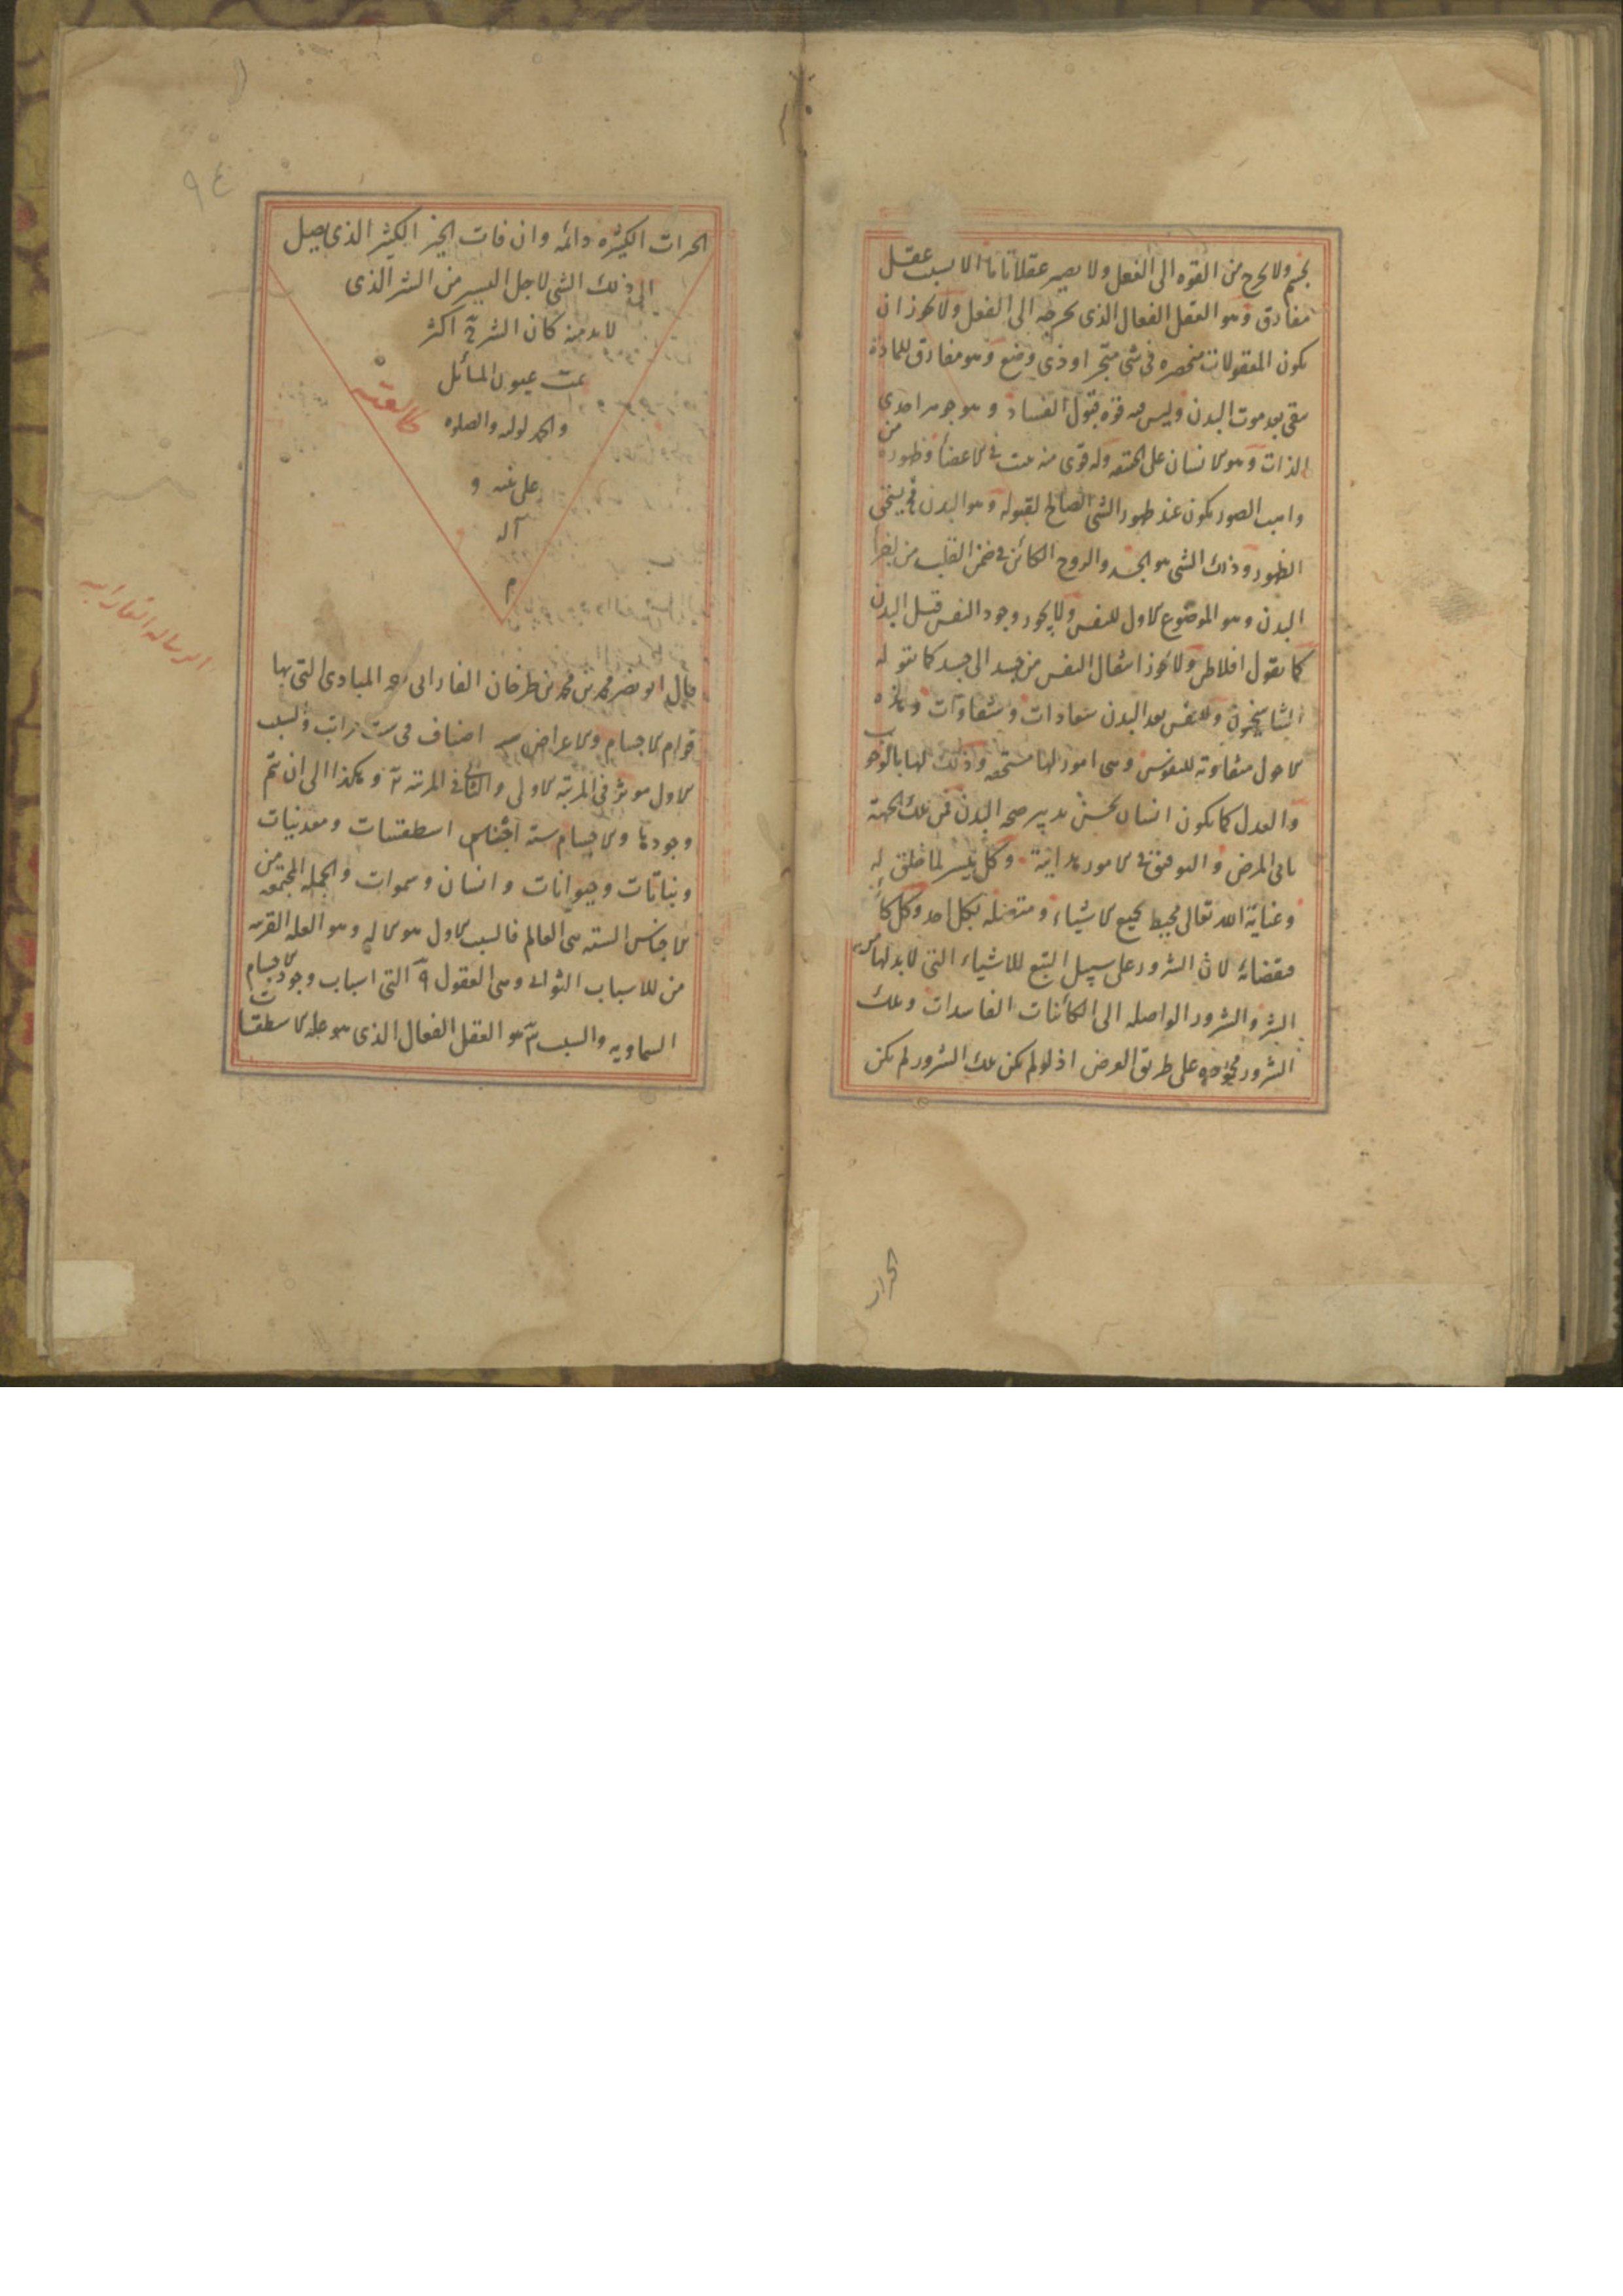 بجسم ولا يخرج من القوه الى الفعل ولا يصير عقلا تاما الا بسبب عقل
مفارق وهو العقل الفعال الذى يخرجه الى الفعل ولا يجوز ان
يكون المعقولات منحصره فى شى متجز او ذى وضع وهو مفارق للمادة
يبقى بعد موت البدن وليس فيه قوة قبول الفساد وهو جوهر احدى
الذات وهو الانسان على الحقيقه وله قوى منه تنبث فى الاعضاء وظهوره من
واهب الصور يكون عند ظهور الشى الصالح لقبوله وهو البدن فح يستحق
الظهور وذلك الشى هو الجسد والروح الكائن فى ضمن القلب من اجزا
البدن وهو الموضوع الاول للنفس ولا يجوز وجود النفس قبل البدن
كما يقول افلاطن ولا يجوز انتقال النفس من جسد الى جسد كما يقوله
التناسخيون وللنفس بعد البدن سعادات وشقاوات وهذه
الاحول متفاوته للنفوس وهى امور لها مستحقه وذلك لها بالوجوب
والعدل كما يكون انسان يحسن تدبير صحه البدن فمن تلك الجهة
ياتى المرض والتوفيق فى الامور بداية وكل ميسر لما خلق له
وعناية الله تعالى محيط بجميع الاشياء ومتصله بكل احد وكل كائن
بقضائه لان الشرور على سبيل التبع للاشياء التى لا بد لها من
الشر والشرور الواصله الى الكائنات الفاسدات وتلك
الشرور محموده على طريق العرض اذ لو لم يكن تلك الشرور لم يكن
الخيرات
٩٤
الخيرات الكثيره دائمه وان فات الخير الكثير الذى يصل
الى ذلك الشى لاجل اليسير من الشر الذى
لا بد منه كان الشر ح اكثر
تمت عيون المسائل
والحمد لوليه والصلوه
على نبيه و
آله
م
الرساله الفارابيه
قال ابو نصر محمد بن محمد بن طرخان الفارابى رحمه المبادى التى بها
قوام الاجسام والاعراض سته اصناف فى ست مراتب والسبب
الاول موثر فى المرتبة الاولى والثانى فى المرتبه ٢ وهكذا الى ان تتم
وجودها والاجسام سته اجناس اسطقسات ومعدنيات
ونباتات وحيوانات وانسان وسموات والجمله المجتمعه من
الاجناس السته هى العالم فالسبب الاول هو الاله وهو العله القريبه
من للاسباب الثوانى وهى العقول ٩ التى اسباب وجود الاجسام
السماويه والسبب ٣ هو العقل الفعال الذى هو عله الاسطقسات